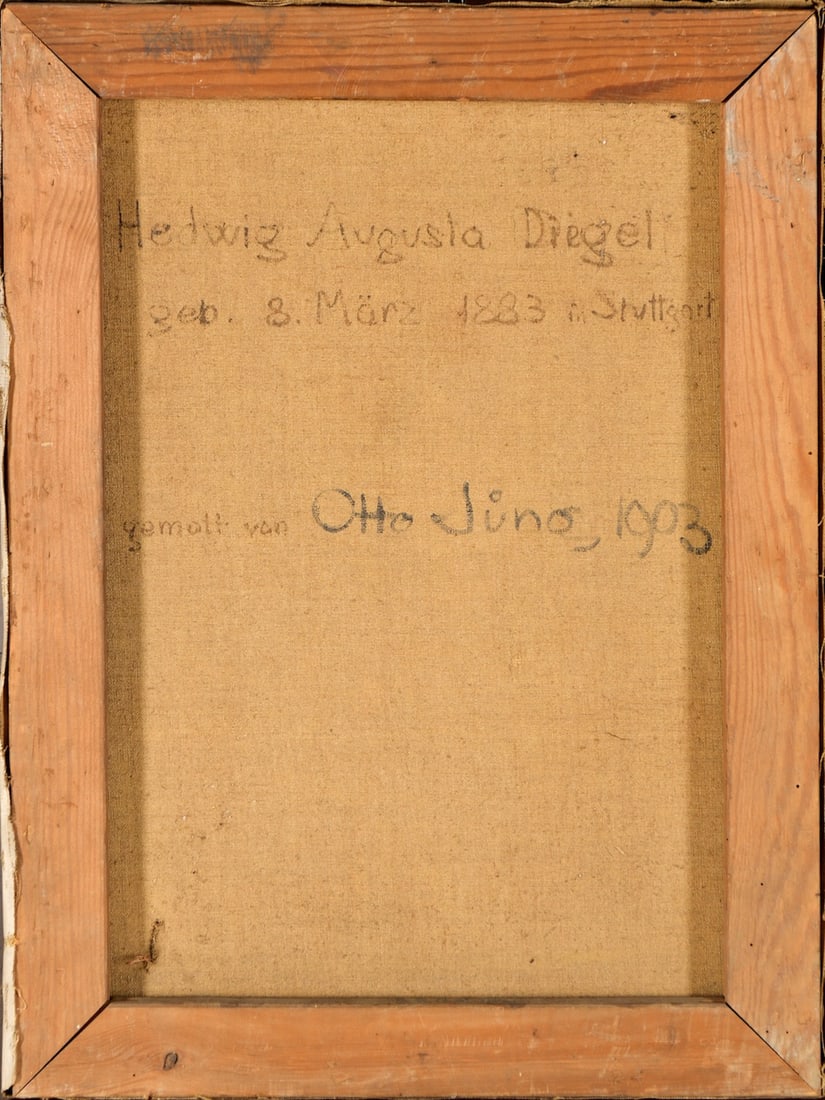 Hedwig Augusta Diegel
geb. 8. März 1883 in Stuttgart
gemalt von Otto Jüng, 1903